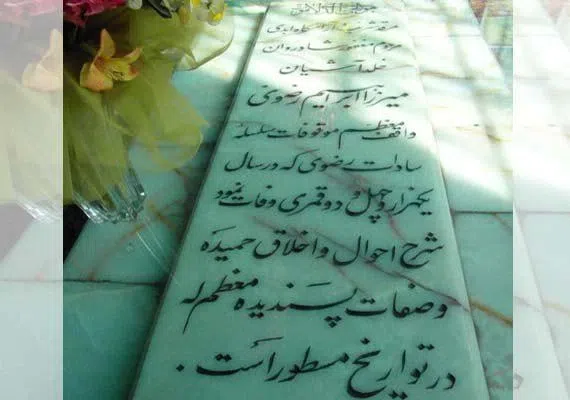 هوالخلاق
مرقد شریف
مرحوم مغفور شادروان
خلد آشیان
میرزا ابراهیم رضوی
واقف معظم موقوفات سلسله
سادات رضوی که در سال
یکهزار و چهل و دو قمری وفات نمود
شرح احوال و اخلاق حمیده
و صفات پسندیده معظم له
در تواریخ مسطور است.